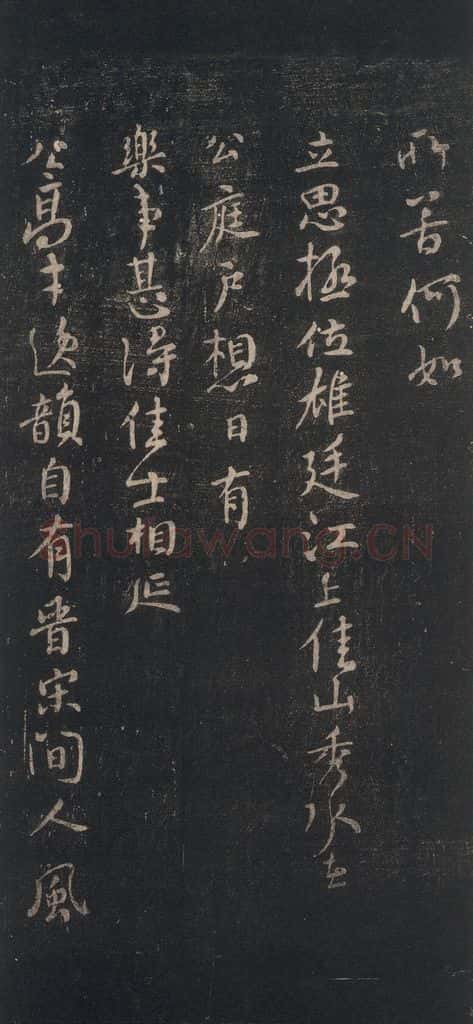 所苦何如
立思極佐雄廷江上佳山秀水在
公庭戶想日有
樂事甚得佳士相延
公高才逸韻自有晉宋間人風
shufawang.CN